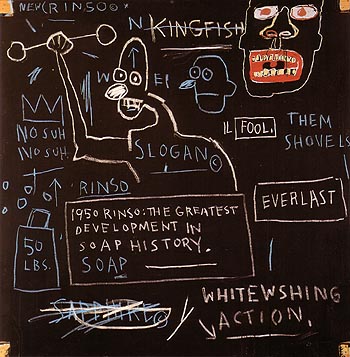 NEW(RINSO©
N KINGFISH
NO SUH
NO SUH
SLOGAN©
IL FOOL.
THEM
SHOVELS
RINSO
1950 RINSO: THE GREATEST
DEVELOPMENT IN
SOAP HISTORY.
SOAP
EVERLAST
50
LBS.
SAPPHIRE©
WHITEWSHING
ACTION.